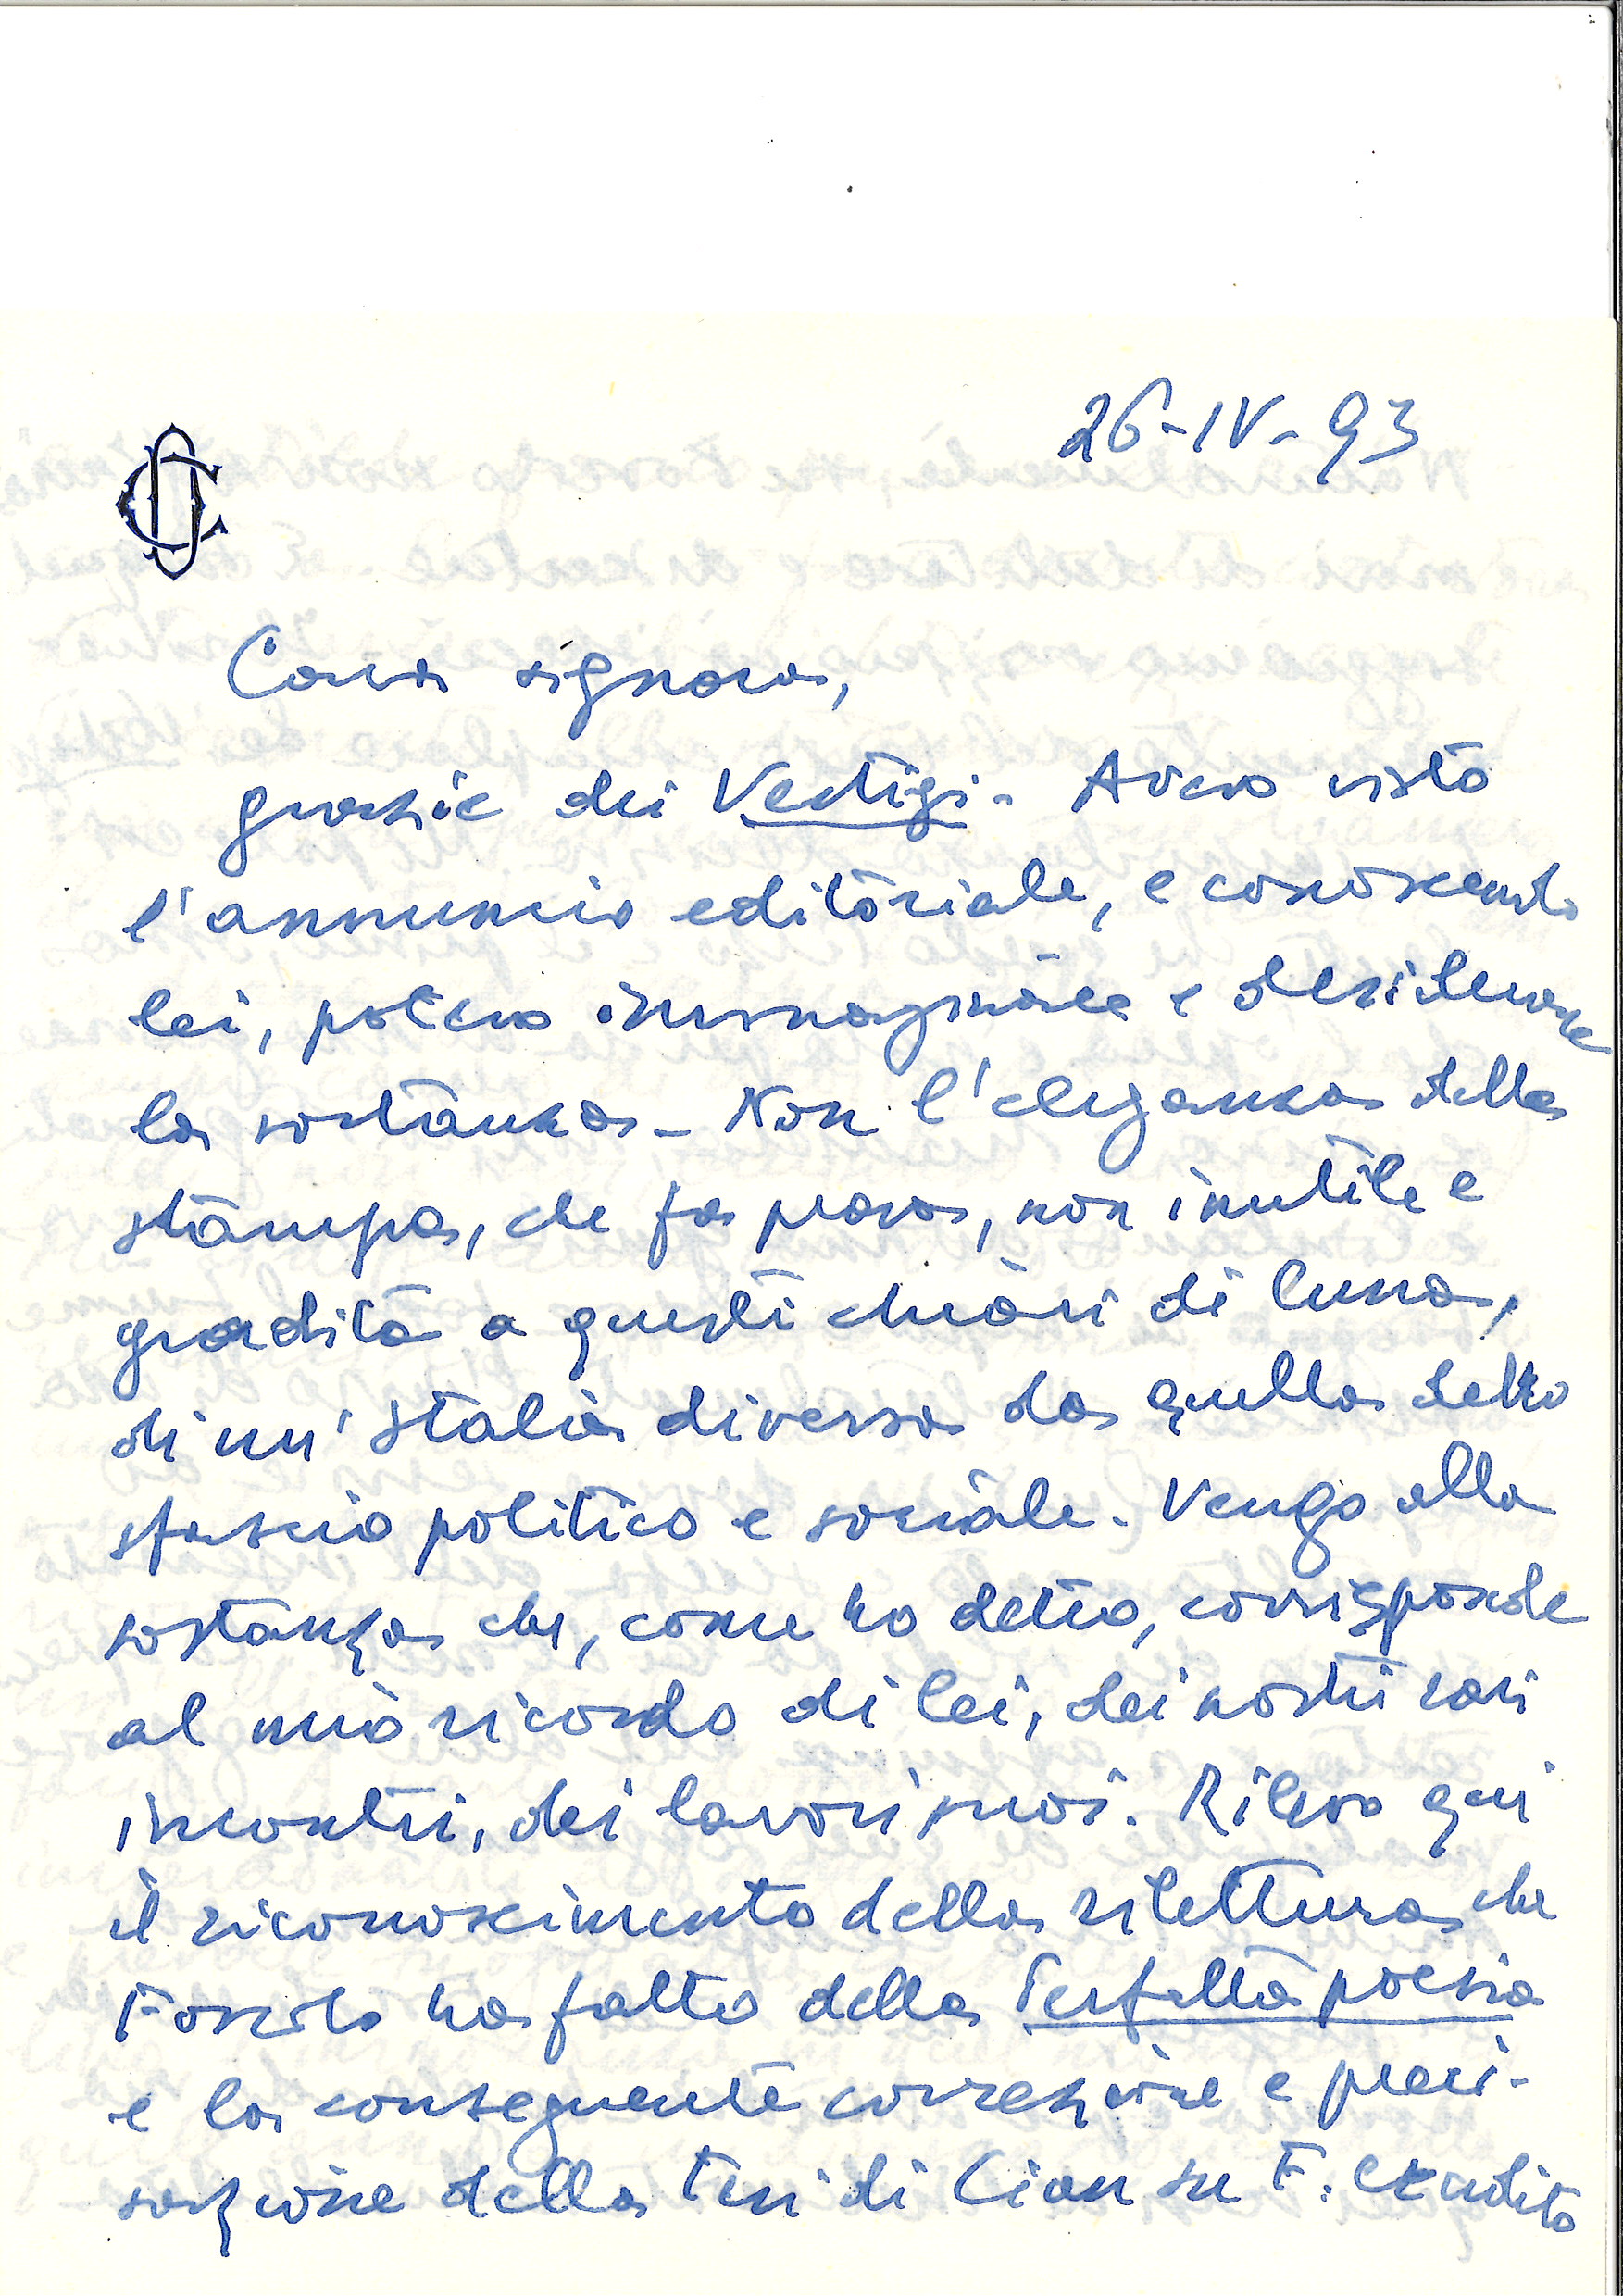 26-IV-93
Cara signora,
grazie dei Vestigi. Avevo visto
l'annuncio editoriale, e conoscendo
lei, potevo immaginare e desiderare
la sostanza. Non l'eleganza della
stampa, che fa prova, non inutile e
gradita a questi chiari di luna,
di un'Italia diversa da quella dello
sfascio politico e sociale. Vengo alla
sostanza che, come ho detto, corrisponde
al mio ricordo di lei, dei nostri rari
incontri, dei lavori suoi. Rilevo qui
il riconoscimento della rilettura che
Foscolo ha fatto della Perfetta poesia
e la conseguente correzione e preci-
sazione della tesi di Cian su F. erudito